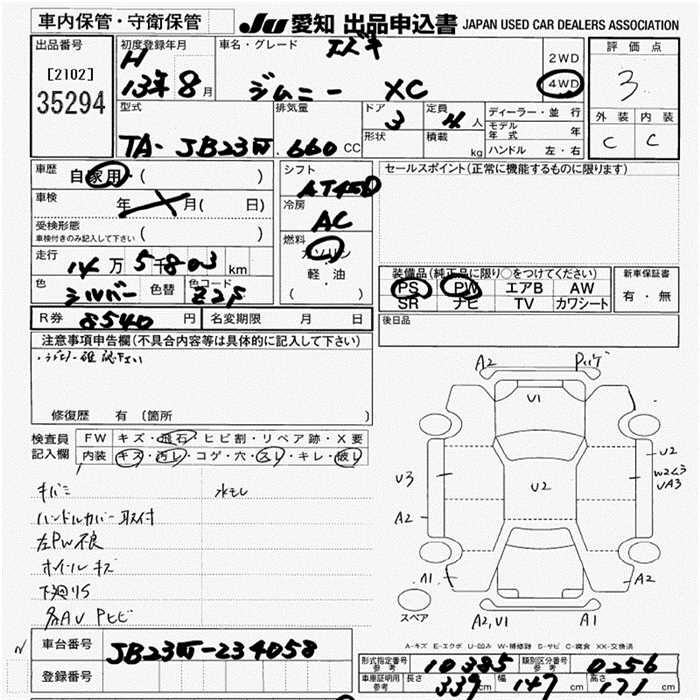 車内保管・守衛保管 JU 愛知 出品申込書 JAPAN USED CAR DEALERS ASSOCIATION
出品番号
[2102]
35294
初度登録年月
H
13年8月
車名・グレード スズキ
ジムニー XC
2WD
4WD
評価点
3
外装 内装
C C
型式
TA-JB23W
排気量
660 CC
ドア
3
形状
定員
4人
積載 kg
ディーラー・並行
モデル年式 年
ハンドル 左・右
車歴 自家用 ( )
車検 年 月( 日)
受検形態
車検付きのみ記入して下さい ( )
走行
14万5千803 km
色 シルバー 色替 色コード Z2S
シフト
AT
冷房
AC
燃料
ガソリン
軽・油
( )
セールスポイント (正常に機能するものに限ります)
装備品(純正品に限り○をつけてください)
PS PW エアB AW
SR ナビ TV カワシート
新車保証書
有・無
後日品
R券 8540 円 名変期限 月 日
注意事項申告欄(不具合内容等は具体的に記入して下さい)
修復歴 有 (箇所 )
検査員
記入欄
FW キズ・飛石・ヒビ割・リペア跡・X要
内装 キズ・汚レ・コゲ・穴・スレ・キレ・破レ
キバミ 水モレ
ハンドルカバー取付
左PW不良
ホイールキズ
下廻りS
A2
U1
U2
U3
A2
A1
U2
W2
UA3
A2
スペア
A2,U1
A1
A-キズ E-エクボ U-凹み W-補修跡 S-サビ C-腐食 XX-交換済
車台番号 JB23W-234058
登録番号
形式指定番号 参考 10385 類別区分番号 参考 0256
車庫証明用 参考 長さ 339 cm 幅 147 cm 高さ 171 cm